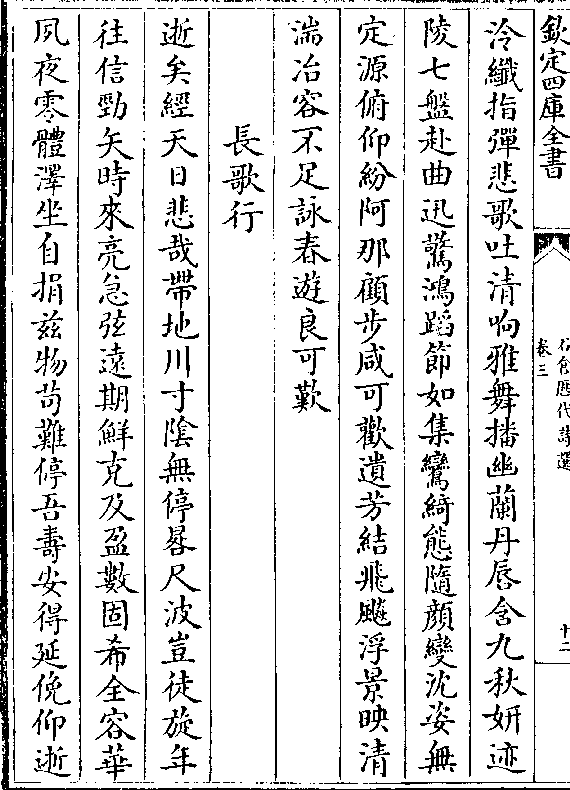 欽定四庫全書
石倉歷代詩選
卷三
十二
泠纖指彈悲歌吐清响雅舞播幽蘭丹唇含九秋妍迹
陵七盤赴曲迅驚鴻蹈節如集鸞綺態隨顔變沈姿無
定源俯仰紛阿那顧步咸可歡遺芳結飛飈浮景映清
湍冶容不足詠春遊良可歎
長歌行
逝矣經天日悲哉帶地川寸陰無停晷尺波豈徒旋年
往信勁矢時來亮急弦遠期鮮克及盈數固希全容華
夙夜零體澤坐自捐兹物苟難停吾壽安得延俛仰逝